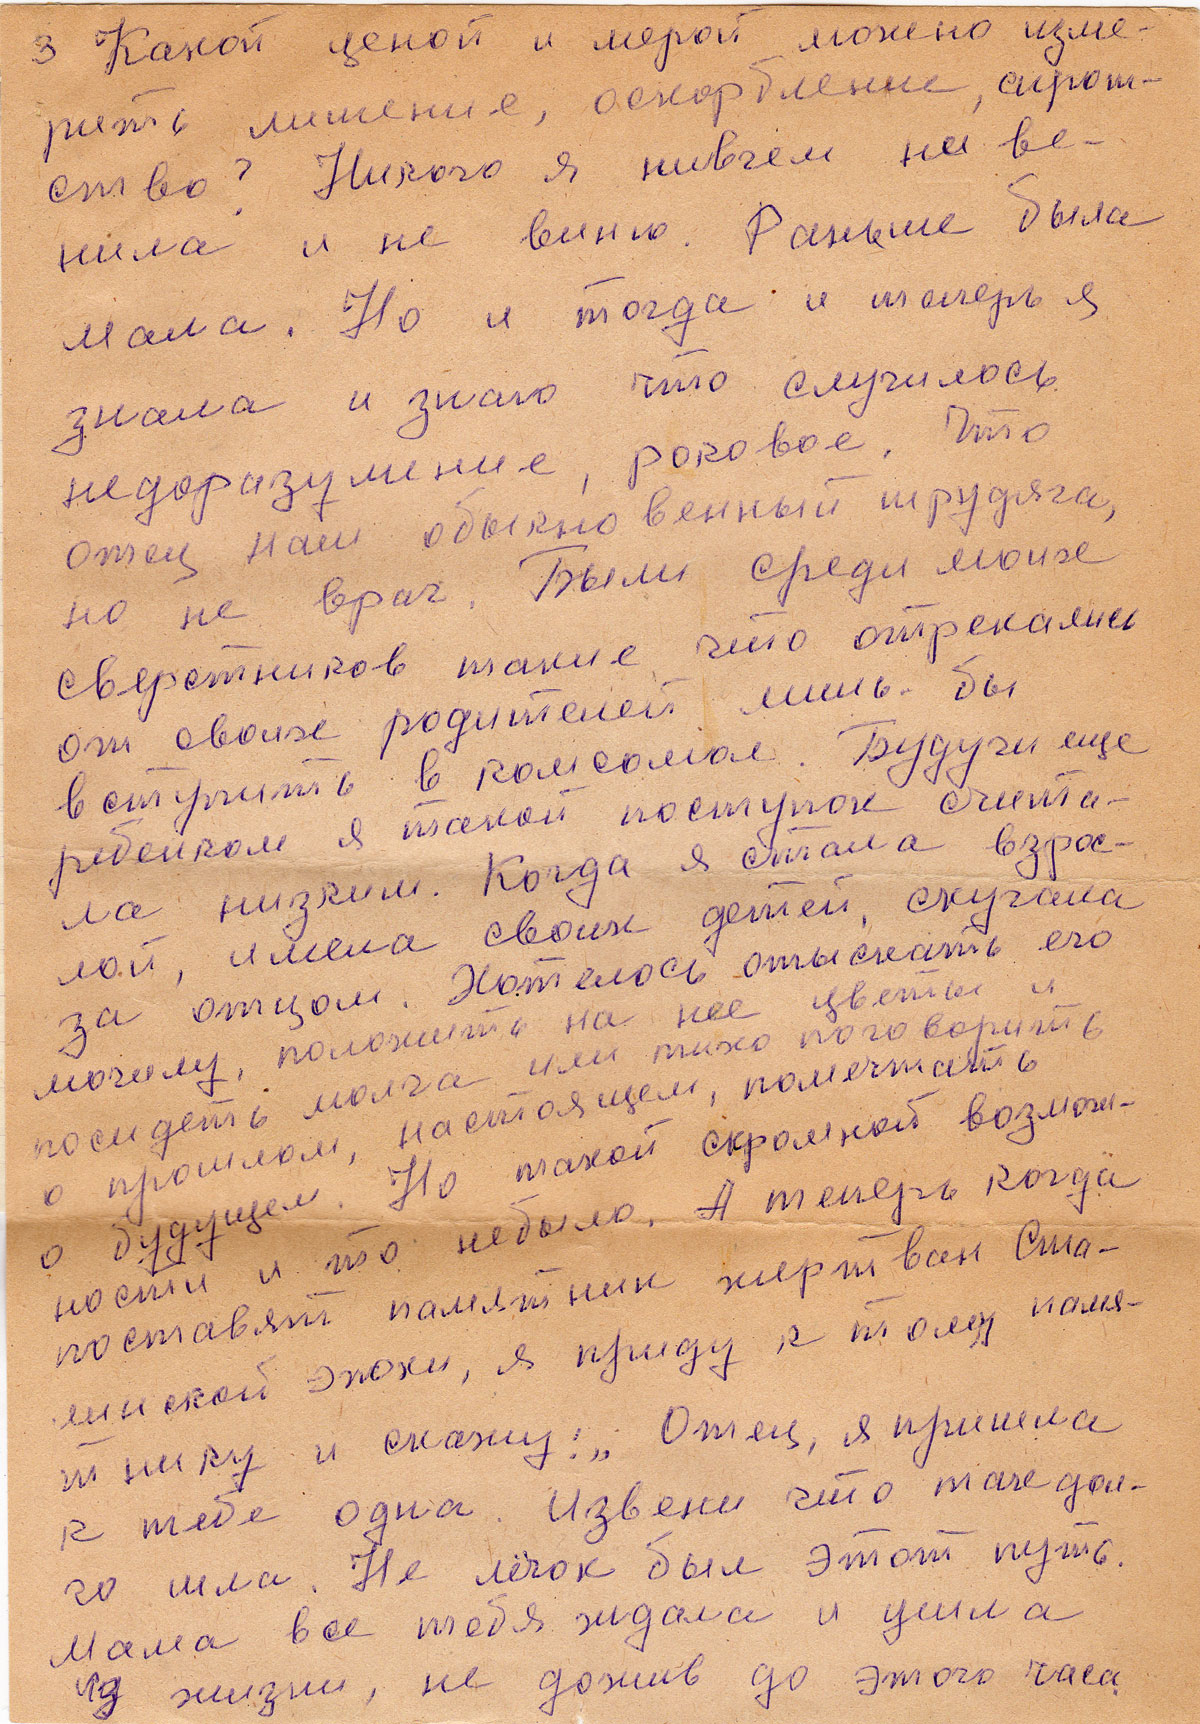 3 Какой ценой и мерой можно изме-
рить лишение, оскорбление, сирот-
ство? Никого я нивчем не ве-
нила и не виню. Раньше была
мама. Но и тогда и теперь я
знала и знаю что случилось
недоразумение, роковое. Что
отец наш обыкновенный трудяга,
но не враг. Были среди моих
сверстников такие что отрекались
от своих родителей лишь-бы
вступить в комсомол. Будучи еще
ребенком я такой поступок счита-
ла низким. Когда я стала взрос-
лой, имела своих детей, скучала
за отцом. Хотелось отыскать его
могилу, положить на нее цветы и
посидеть молча или тихо поговорить
о прошлом, настоящем, помечтать
о будущем. Но такой скромной возмож-
ности и то небыло. А теперь когда
поставят памятник жертвам Ста-
линской эпохи, я приду к тому памя-
тнику и скажу: „Отец, я пришла
к тебе одна. Извени что такдол-
го шла. Не лёгок был этот путь.
Мама все тебя ждала и ушла
из жизни, не дожив до этого часа